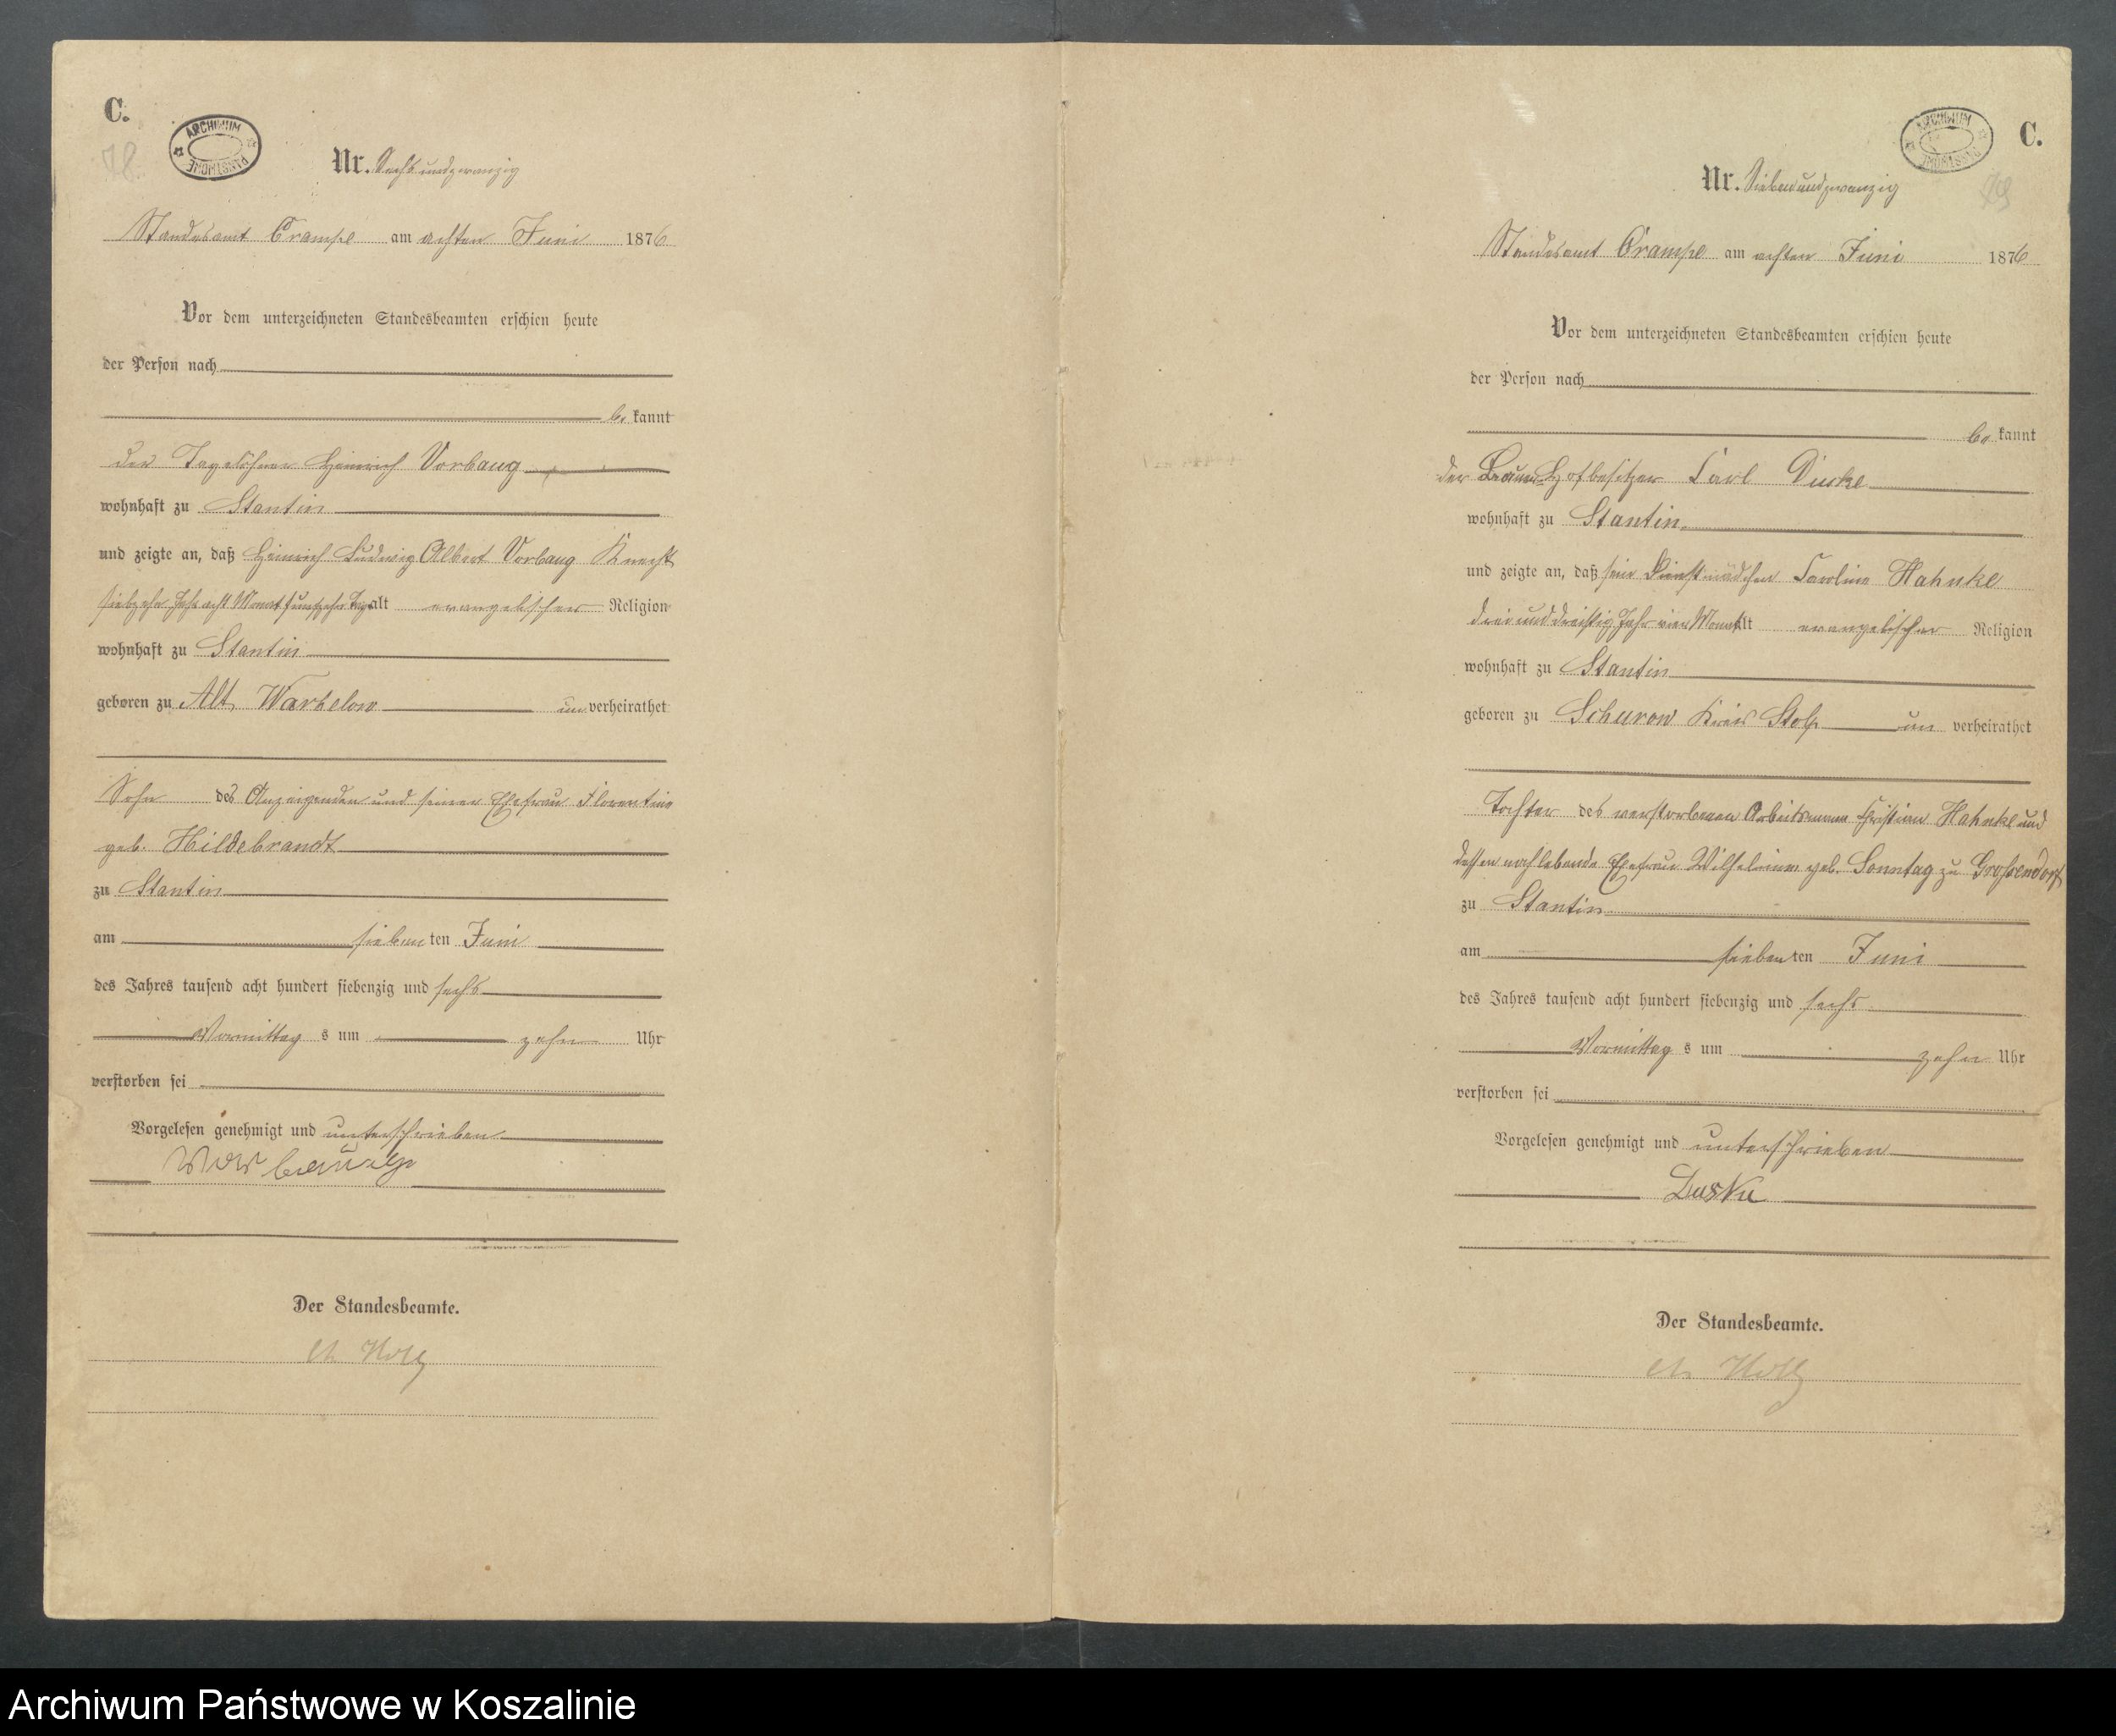 C.
78.
ARCHIWUM PAŃSTWOWE
Nr. Sechsundzwanzig
Standesamt Crampe am achten Juni 1876
Vor dem unterzeichneten Standesbeamten erschien heute
der Person nach
bekannt
der Tagelöhner Heinrich Vorbaug
wohnhaft zu Stantin
und zeigte an, daß Heinrich Ludwig Albert Vorbaug Knecht
siebzehn Jahr acht Monat fünfzehn Tage alt evangelischer Religion
wohnhaft zu Stantin
geboren zu Alt Warbelow unverheirathet
Sohn des Anzeigenden und seiner Ehefrau Florentine
geb. Hildebrandt
zu Stantin
am siebenten Juni
des Jahres tausend acht hundert siebenzig und sechs
Vormittags um zehn Uhr
verstorben sei
Vorgelesen genehmigt und unterschrieben
Der Standesbeamte.
C.
79
ARCHIWUM PAŃSTWOWE
Nr. Siebenundzwanzig
Standesamt Crampe am achten Juni 1876
Vor dem unterzeichneten Standesbeamten erschien heute
der Person nach
bekannt
der Bauer-Hofbesitzer Carl
wohnhaft zu Stantin
und zeigte an, daß sein Dienstmädchen Caroline Hahnke
dreiunddreißig Jahr vier Monat alt evangelischer Religion
wohnhaft zu Stantin
geboren zu Schurow Kreis Stolp unverheirathet
Tochter des verstorbenen Arbeitsmann Christian Hahnke und
dessen nachlebende Ehefrau Wilhelmine geb. Sonntag zu Grossendorf
zu Stantin
am siebenten Juni
des Jahres tausend acht hundert siebenzig und sechs
Vormittags um zehn Uhr
verstorben sei
Vorgelesen genehmigt und unterschrieben
Der Standesbeamte.
Archiwum Państwowe w Koszalinie